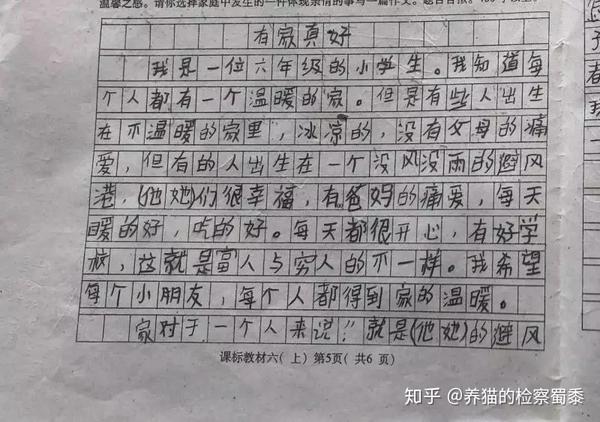 温馨之感。请你选择家庭中发生的一件体现亲情的事写一篇作文。题目自拟。
有家真好
我是一位六年级的小学生。我知道每
个人都有一个温暖的家。但是有些人出生
在不温暖的家里，冰凉的，没有父母的痛
爱，但有的人出生在一个没风没雨的避风
港，(他她)们很幸福，有爸妈的痛爱，每天
暖的好，吃的好。每天都很开心，有好学
校，这就是富人与穷人的不一样。我希望
每个小朋友，每个人都得到家的温暖。
家对于一个人来说！就是(他她)的避风
课标教材六( 上 ) 第5页( 共6 页 )
知乎 @养猫的检察蜀黍